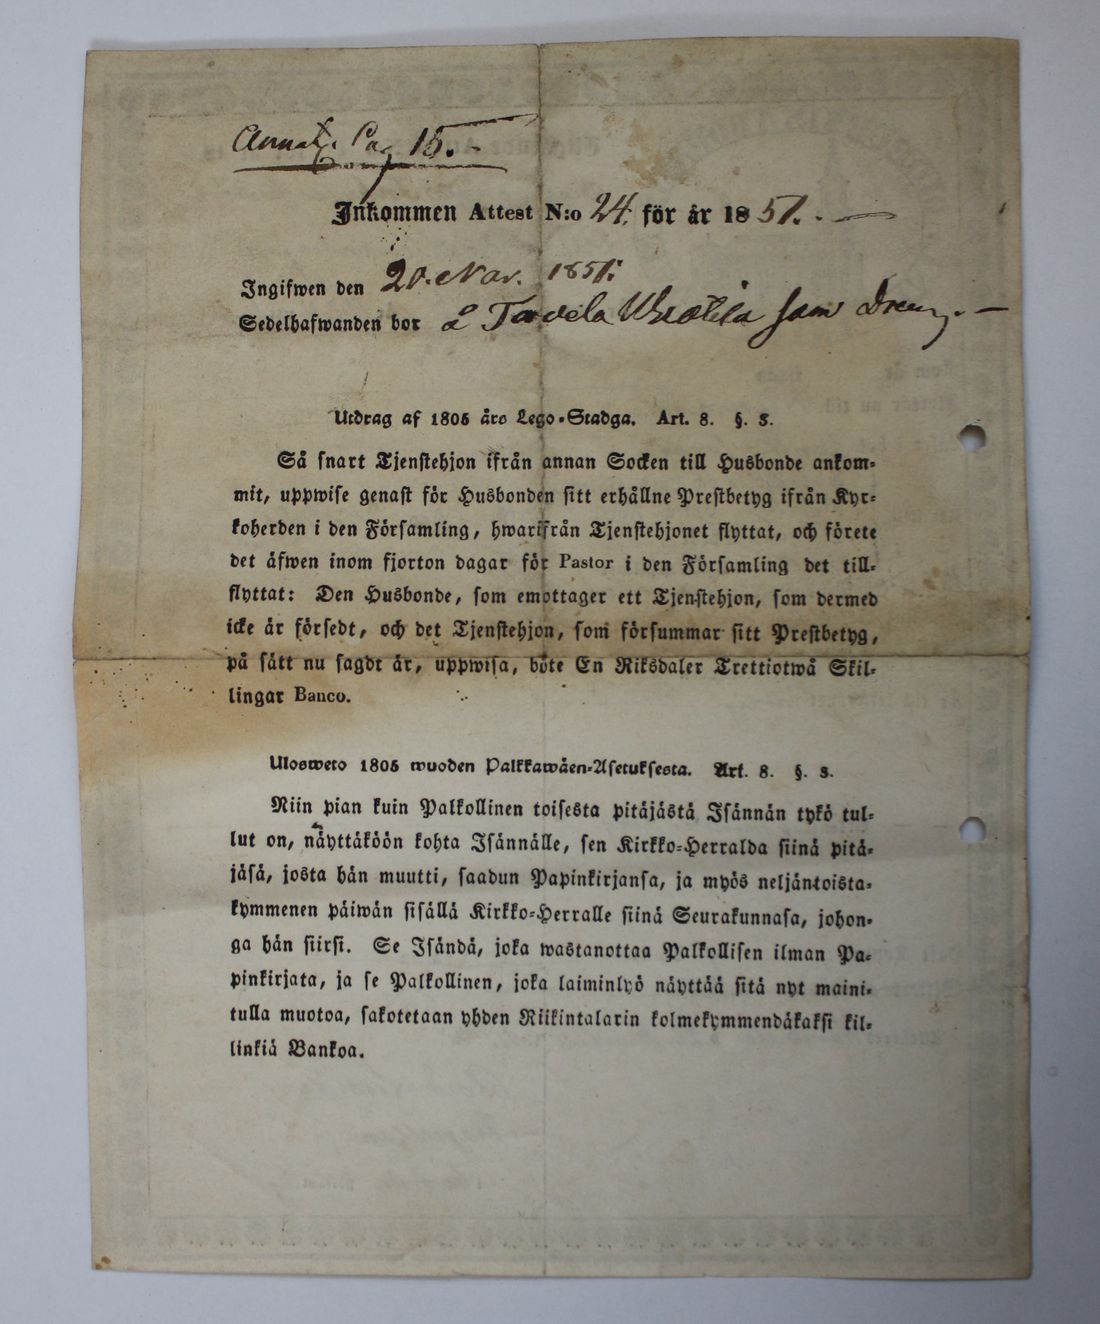 Annot. Pag 15. -
Inkommen Attest N:o 24. för år 1851. -
Ingifwen den 20. Nov. 1851.
Sedelhafwanden bor å Tavela som Dreng. -
Utdrag af 1805 års Lego-Stadga. Art. 8. §. 3.
Så snart Tjenstehjon ifrån annan Socken till Husbonde ankom-
mit, uppwise genast för Husbonden sitt erhållne Prestbetyg ifrån Kyr-
koherden i den Församling, hwarifrån Tjenstehjonet flyttat, och förete
det äfwen inom fjorton dagar för Pastor i den Församling det till-
flyttat: Den Husbonde, som emottager ett Tjenstehjon, som dermed
icke är försedt, och det Tjenstehjon, som försummar sitt Prestbetyg,
på sätt nu sagdt är, uppwisa, böte En Riksdaler Trettiotwå Skil-
lingar Banco.
Ulosweto 1805 wuoden Palkkawäen-Asetuksesta. Art. 8. §. 3.
Niin pian kuin Palkollinen toisesta pitäjästä Isännän tykö tul-
lut on, näyttäköön kohta Isännälle, sen Kirkko-Herralda siinä pitä-
jäsä, josta hän muutti, saadun Papinkirjansa, ja myös neljäntoista-
kymmenen päiwän sisällä Kirkko-Herralle siinä Seurakunnasa, johon-
ga hän siirsi. Se Isändä, joka wastanottaa Palkollisen ilman Pa-
pinkirjata, ja se Palkollinen, joka laiminlyö näyttää sitä nyt maini-
tulla muotoa, sakotetaan yhden Riikintalarin kolmekymmendäkaksi kil-
linkiä Bankoa.